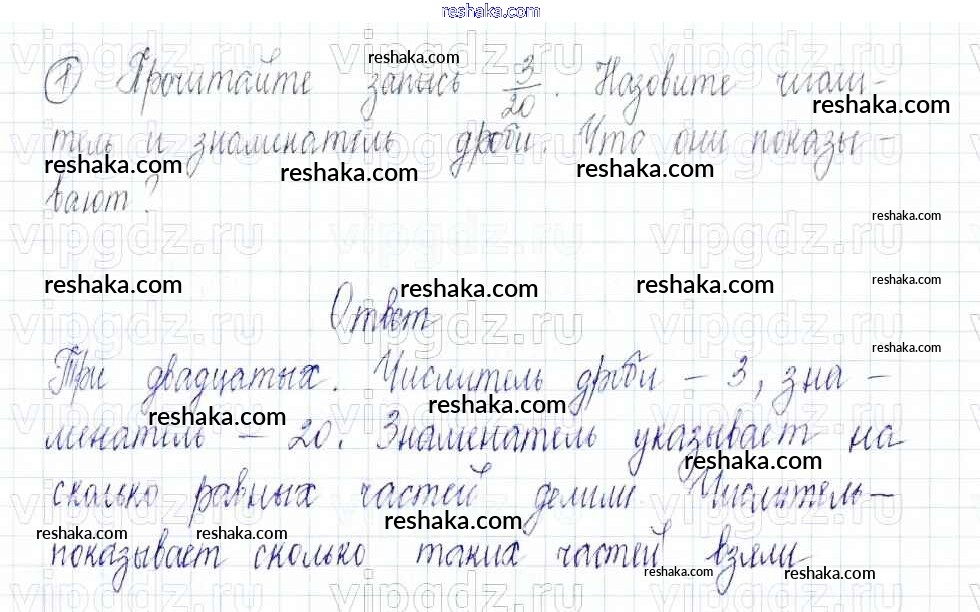 reshaka.com
① Прочитайте запись 3/20. Назовите числи-
тель и знаменатель дроби. Что они показы-
вают?
Ответ
Три двадцатых. Числитель дроби – 3, зна-
менатель – 20. Знаменатель указывает на
сколько равных частей делили Числитель –
показывает сколько таких частей взяли